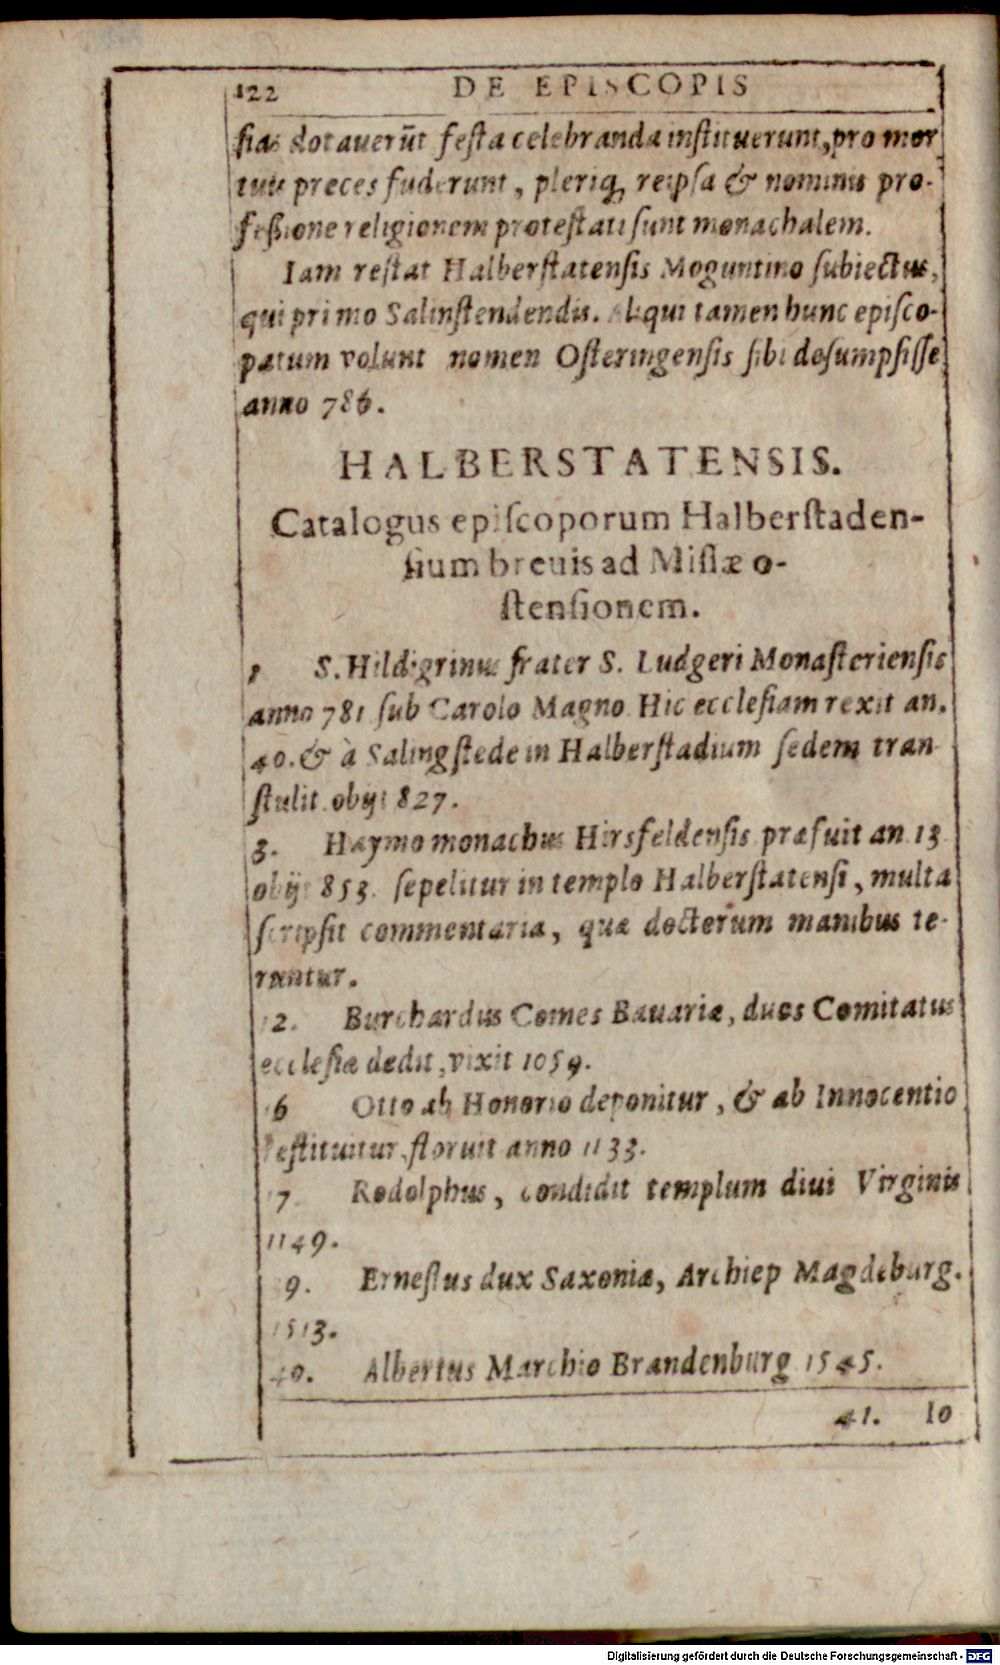 122 DE EPISCOPIS
sias dotauerūt festa celebranda instituerunt, pro mor
tuis preces fuderunt, pleriq́ reipsa & nominis pro-
feßione religionem protestati sunt monachalem.
Iam restat Halberstatensis Moguntino subiectus,
qui primo Salinstendendis. Aliqui tamen hunc episco-
patum volunt nomen Osteringensis sibi desumpsisse
anno 786.
HALBERSTATENSIS.
Catalogus episcoporum Halberstaden-
sium breuis ad Missæ o-
stensionem.
1 S. Hildigrinus frater S. Ludgeri Monasteriensis
anno 781 sub Carolo Magno Hic ecclesiam rexit an.
40. & à Salingstede in Halberstadium sedem tran-
stulit obijt 827.
3. Haymo monachus Hirsfeldensis præfuit an 13
obijt 853. sepelitur in templo Halberstatensi, multa
scripsit commentaria, quæ doctorum manibus te-
runtur.
12. Burchardus Comes Bauariæ, duos Comitatus
ecclesiæ dedit, vixit 1059.
16 Otto ab Honorio deponitur, & ab Innocentio
restituitur, floruit anno 1133.
17 Rodolphus, condidit templum diui Virginis
1149.
39. Ernestus dux Saxoniæ, Archiep Magdeburg.
1513.
40. Albertus Marchio Brandenburg 1545.
41. Io
Digitalisierung gefördert durch die Deutsche Forschungsgemeinschaft - DFG